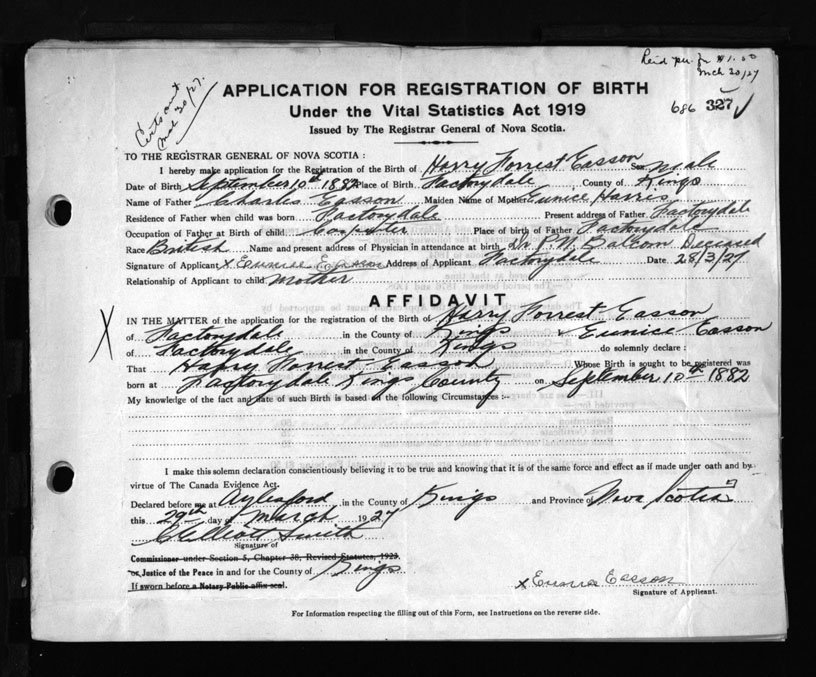 Certs out
Mch 30/27.
Reid per for $1.50
Mch 30/27
APPLICATION FOR REGISTRATION OF BIRTH
686 327
Under the Vital Statistics Act 1919
Issued by The Registrar General of Nova Scotia.
TO THE REGISTRAR GENERAL OF NOVA SCOTIA:
I hereby make application for the Registration of the Birth of Harry Forrest Easson Sex Male
Date of Birth September 10th 1882 Place of Birth Factorydale, County of Kings
Name of Father Charles Easson Maiden Name of Mother Eunice Harris
Residence of Father when child was born Factorydale Present address of Father Factorydale
Occupation of Father at Birth of child Carpenter Place of birth of Father Factorydale
Race British Name and present address of Physician in attendance at birth Dr P.N. Balcom Deceased
Signature of Applicant x Eunice Easson Address of Applicant Factorydale Date 28/3/27
Relationship of Applicant to child Mother
AFFIDAVIT
X
IN THE MATTER of the application for the registration of the Birth of Harry Forrest Easson
of Factorydale in the County of Kings & Eunice Easson
of Factorydale in the County of Kings do solemnly declare:
That Harry Forrest Easson Whose Birth is sought to be registered was
born at Factorydale Kings County on September 10th 1882
My knowledge of the fact and date of such Birth is based on the following Circumstances:-
I make this solemn declaration conscientiously believing it to be true and knowing that it is of the same force and effect as if made under oath and by
virtue of The Canada Evidence Act.
Declared before me at Aylesford in the County of Kings and Province of Nova Scotia
this 29th day of March 1927
Smith
Signature of
Commissioner under Section 5, Chapter 38, Revised Statutes, 1923
or, Justice of the Peace in and for the County of Kings
If sworn before a Notary Public affix seal.
x Eunice Easson
Signature of Applicant.
For Information respecting the filling out of this Form, see Instructions on the reverse side.